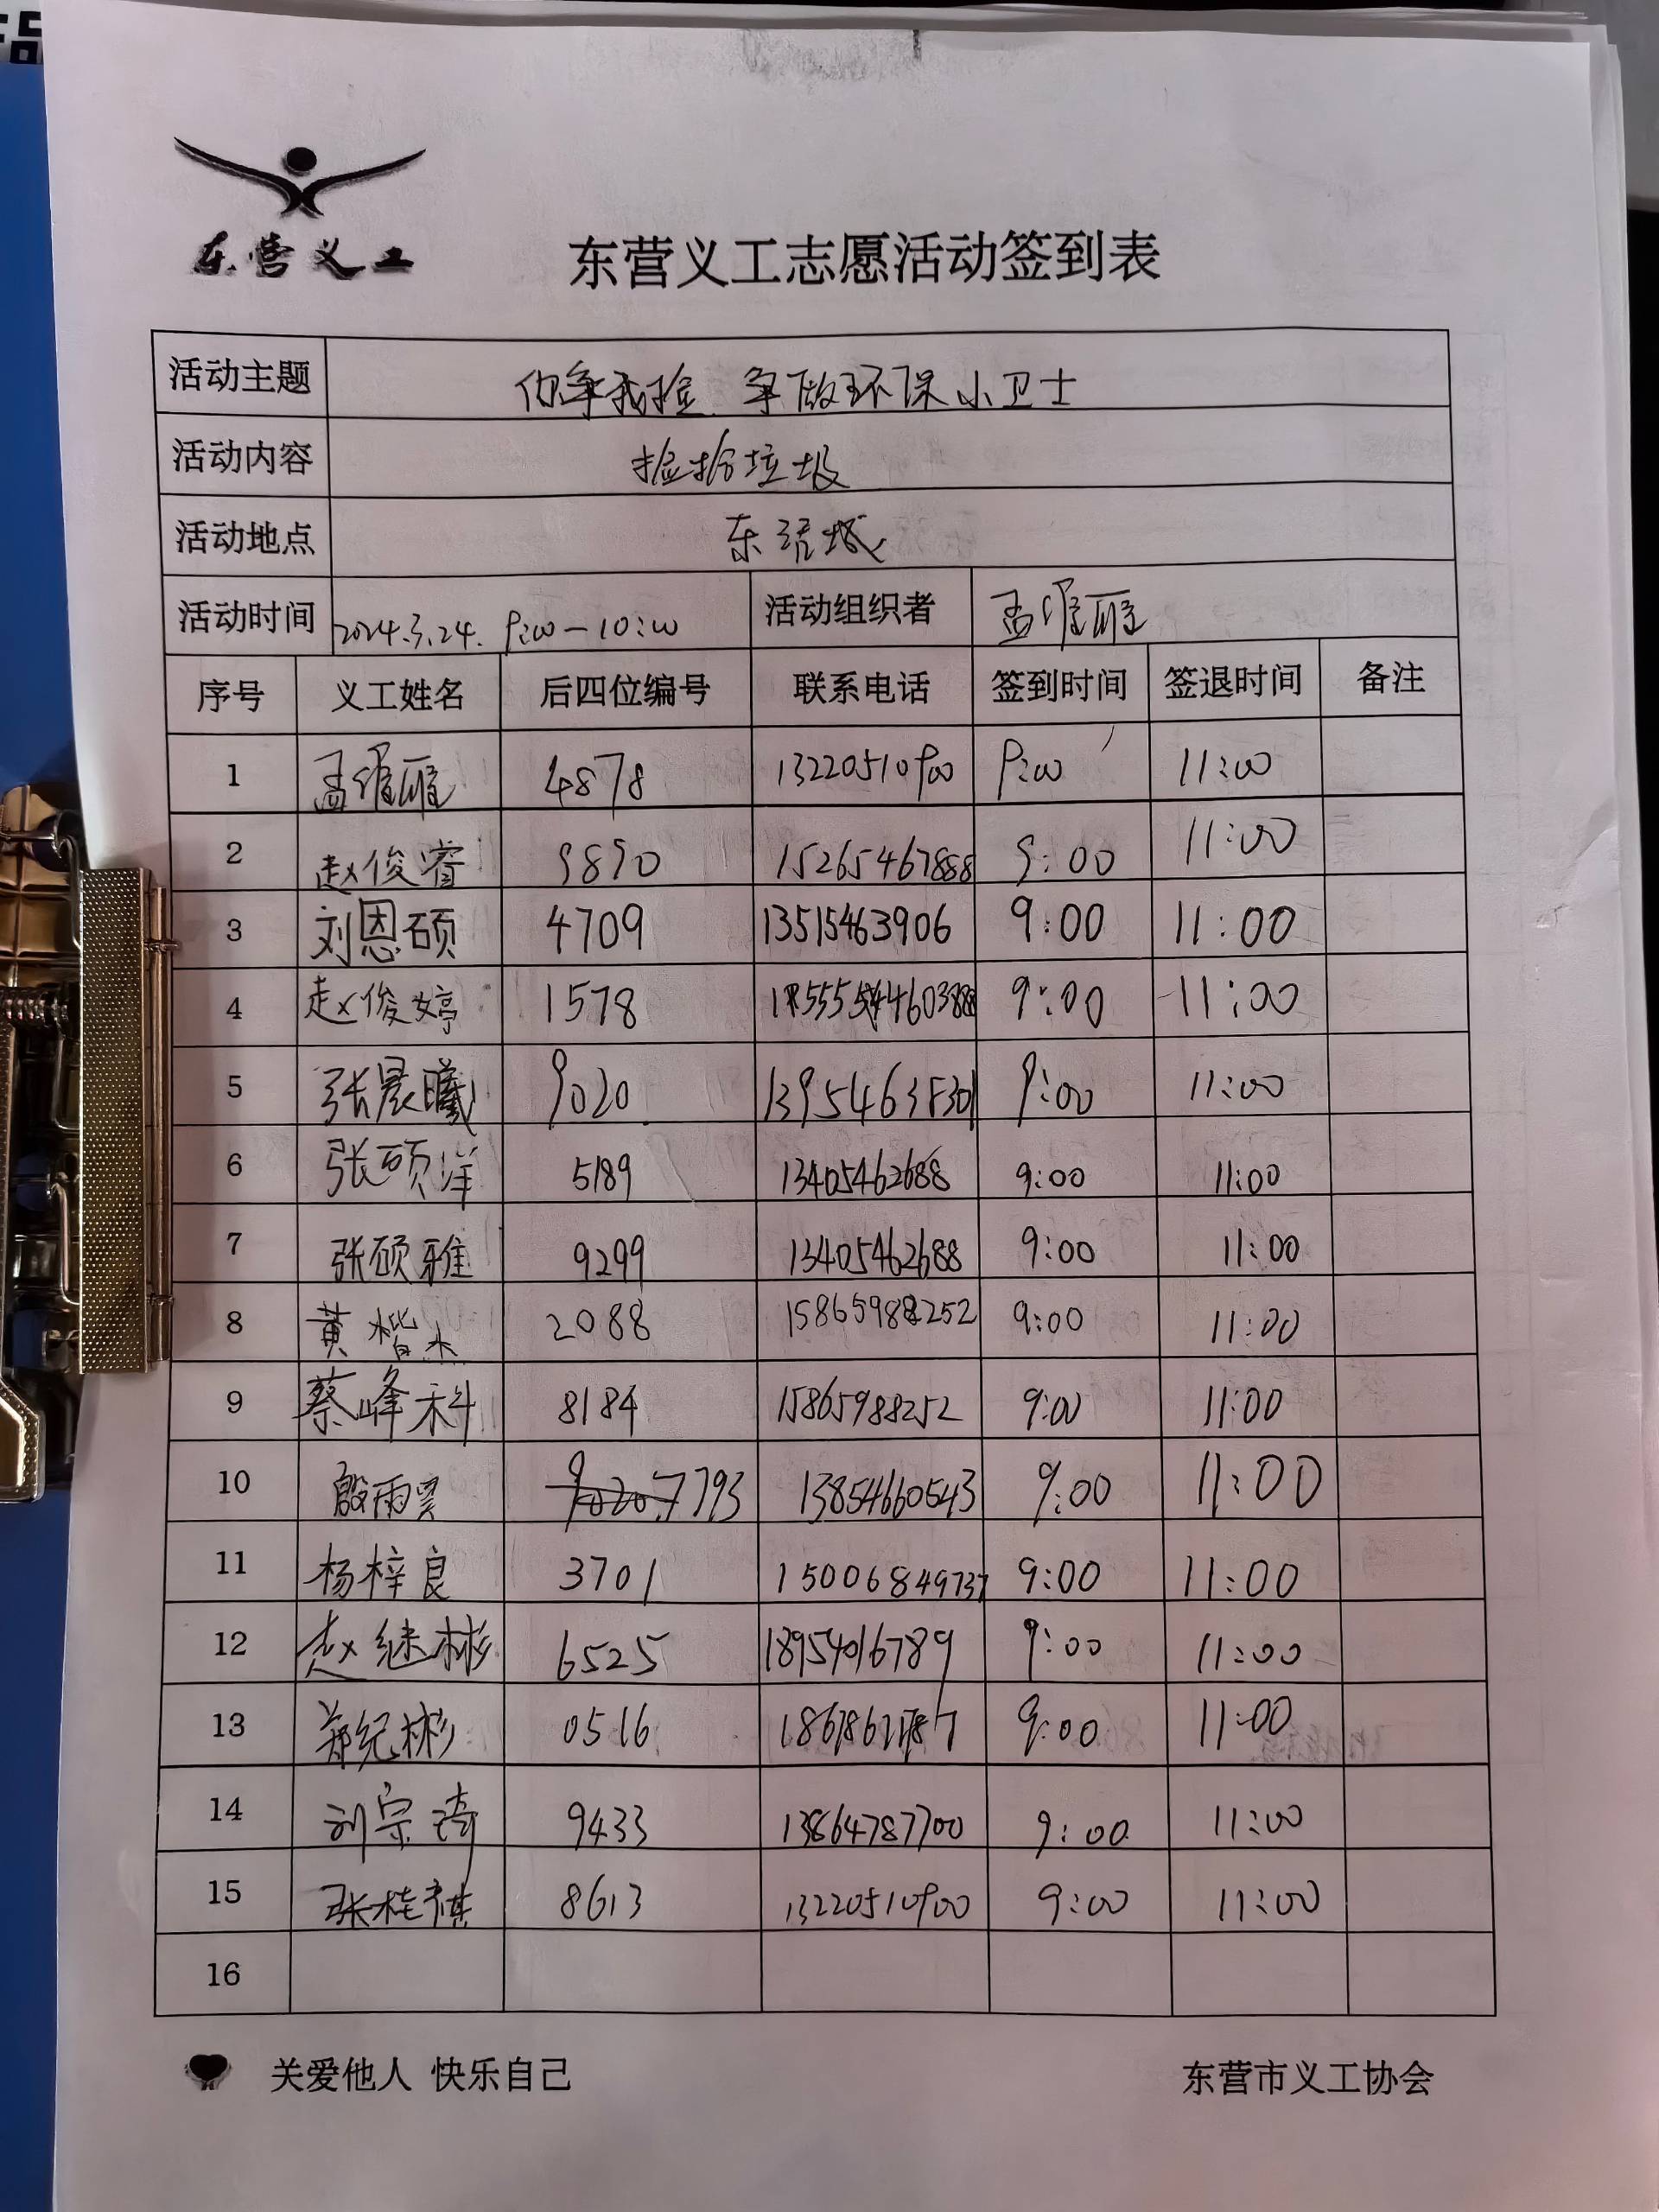 东营义工
东营义工志愿活动签到表
活动主题 你争我捡 争做环保小卫士
活动内容 捡拾垃圾
活动地点 东
活动时间 2024.3.24. 9:00-10:00 活动组织者 孟维雁
序号 义工姓名 后四位编号 联系电话 签到时间 签退时间 备注
1 孟维雁 4878 13220510900 9:00 11:00
2 赵俊睿 9890 15265467888 9:00 11:00
3 刘恩硕 4709 13515463906 9:00 11:00
4 赵俊婷 1578 9:00 11:00
5 张晨曦 9020 9:00 11:00
6 张硕洋 5189 13405462688 9:00 11:00
7 张硕雅 9299 13405462688 9:00 11:00
8 黄楷杰 2088 15865988252 9:00 11:00
9 蔡峰科 8184 15865988252 9:00 11:00
10 殷雨 9020 7793 13854660543 9:00 11:00
11 杨梓良 3701 15006849737 9:00 11:00
12 赵继彬 6525 18954016789 9:00 11:00
13 郑纪彬 0516 9:00 11:00
14 刘宗琦 9433 13864787700 9:00 11:00
15 张桂祺 8613 13220510900 9:00 11:00
16
关爱他人 快乐自己
东营市义工协会